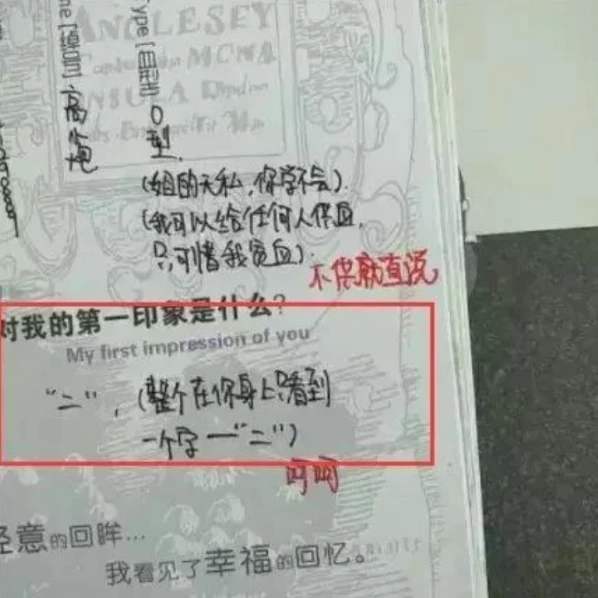 ANGLESEY
INSULA
Type [血型] O型.
[绰号] 高炮
(姐的无私,你学不会).
(我可以给任何人供血,
只可惜我贫血).
不供就直说
对我的第一印象是什么?
My first impression of you
“二”,(整个在你身上只看到
一个字—“二”)
呵呵
轻意的回眸...
我看见了幸福的回忆。